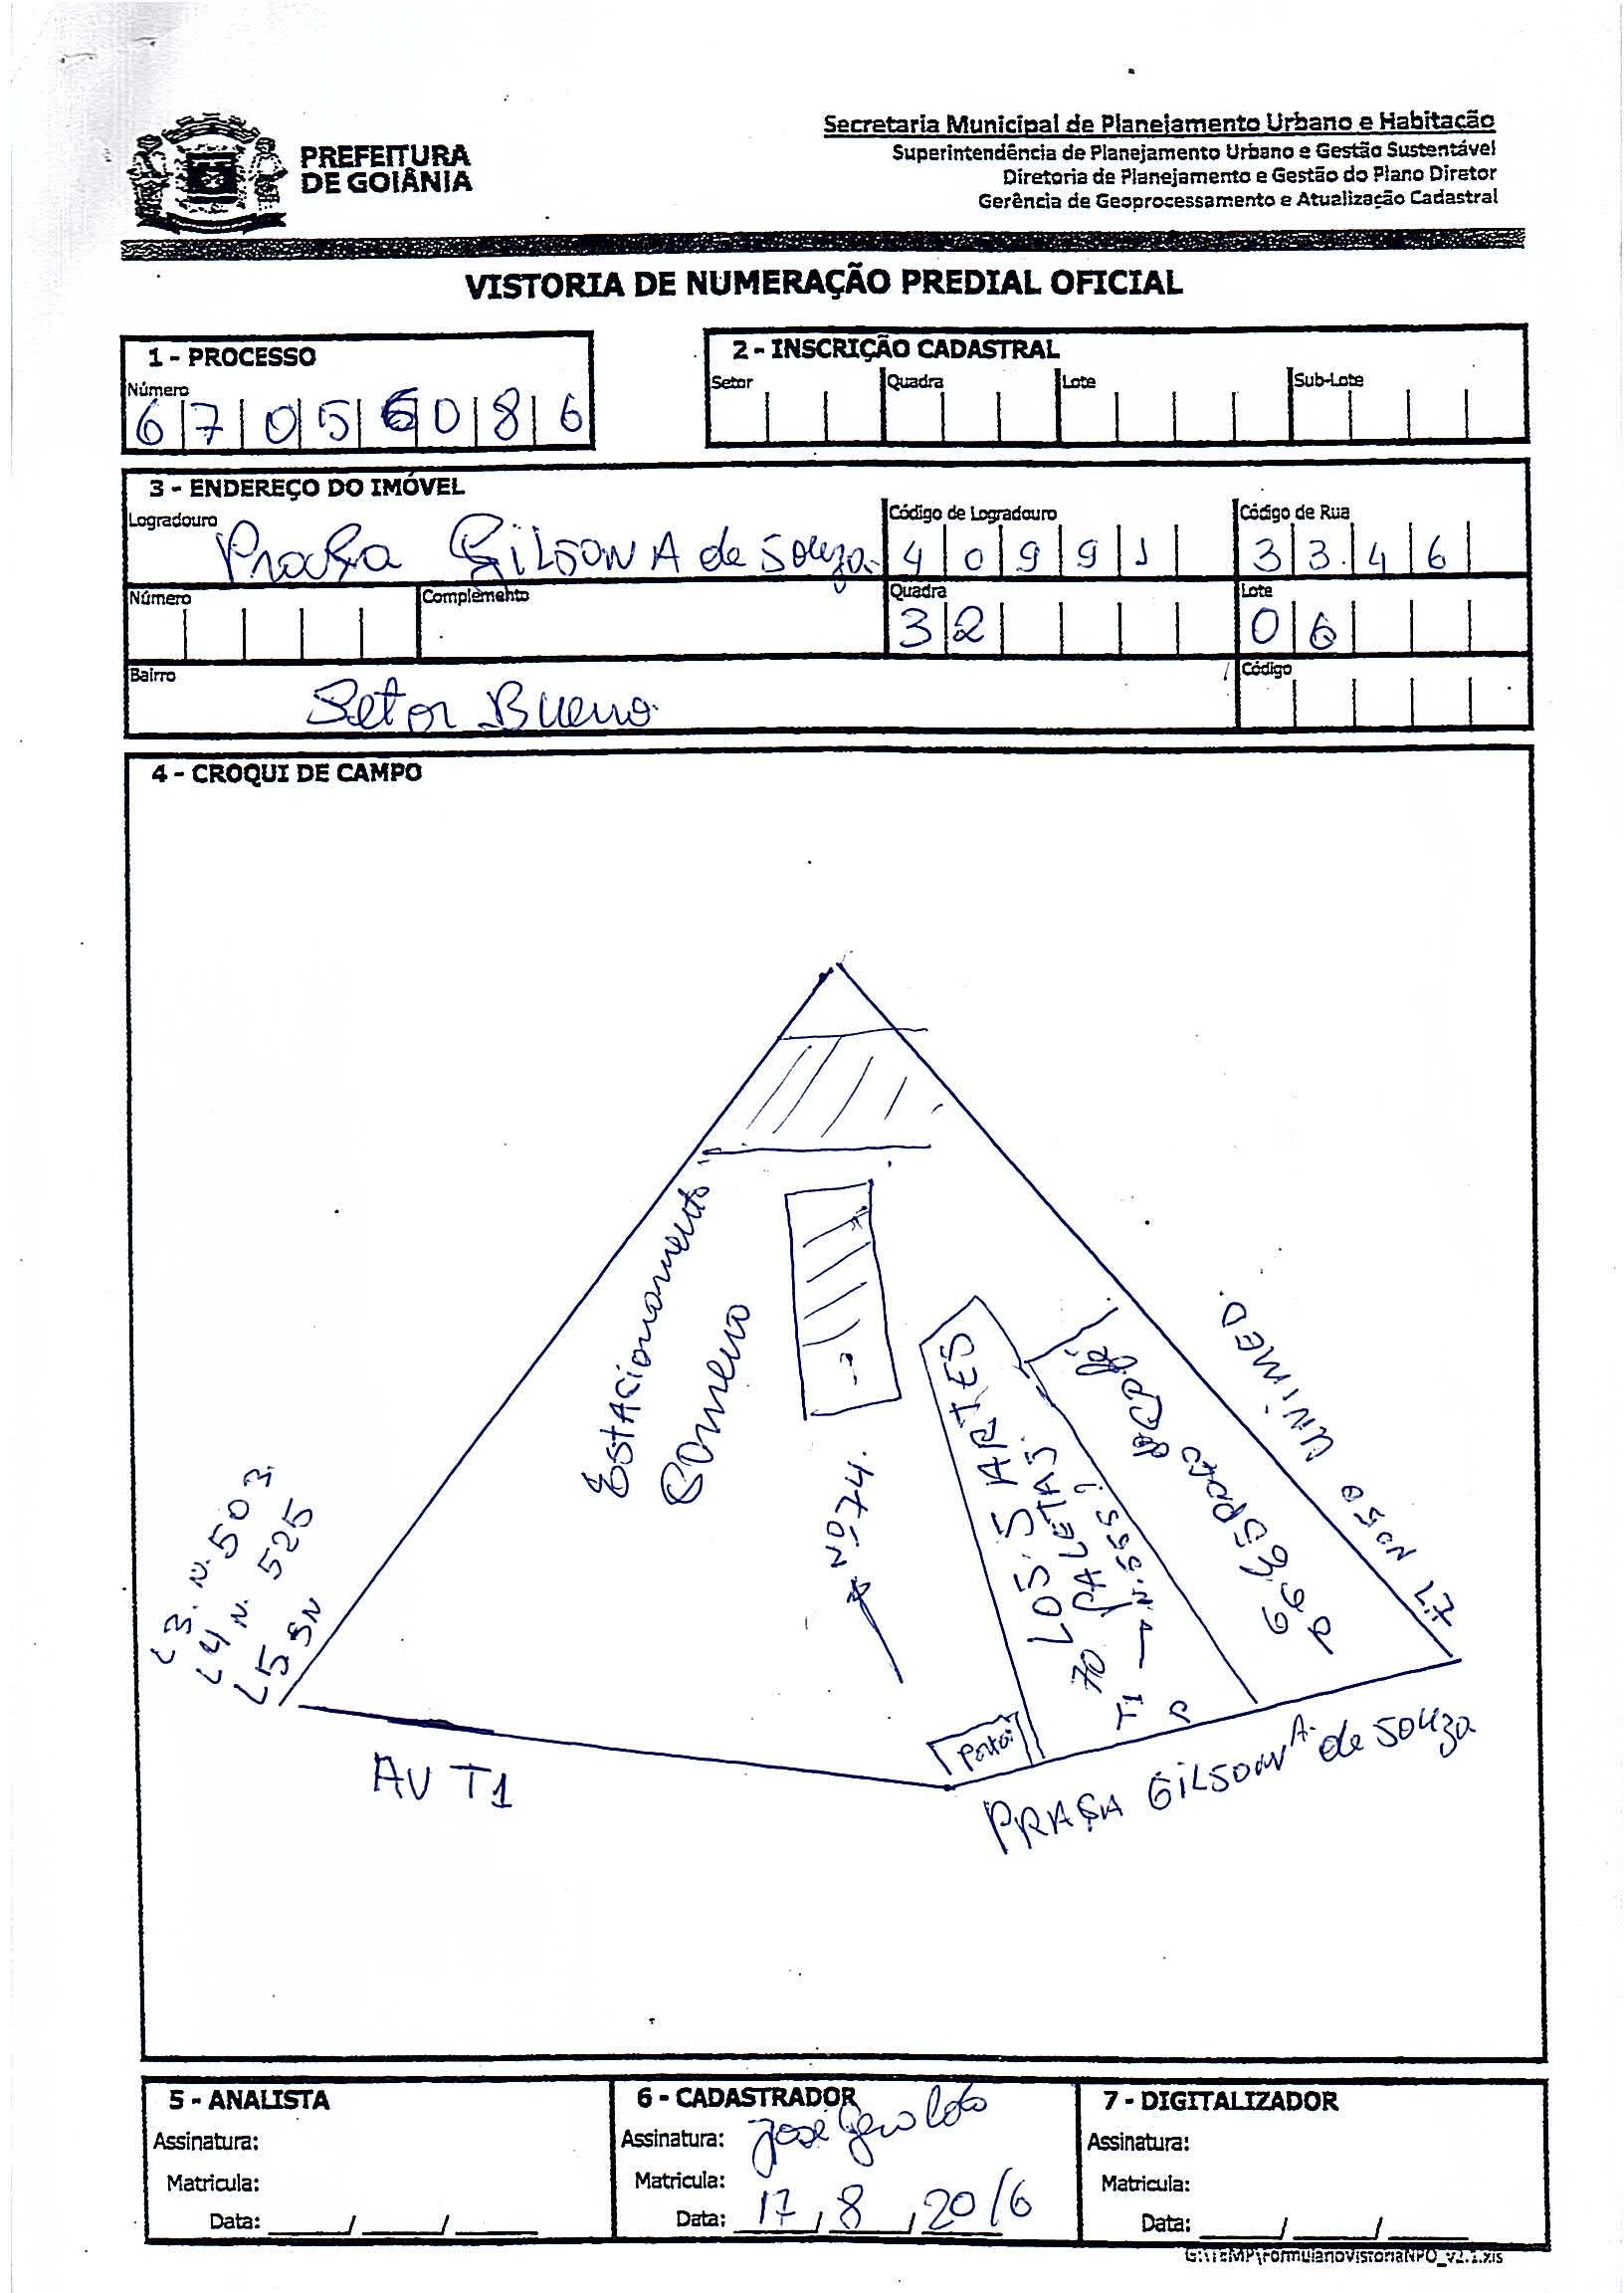 PREFEITURA
DE GOIÂNIA
Secretaria Municipal de Planejamento Urbano e Habitação
Superintendência de Planejamento Urbano e Gestão Sustentável
Diretoria de Planejamento e Gestão do Plano Diretor
Gerência de Geoprocessamento e Atualização Cadastral
VISTORIA DE NUMERAÇÃO PREDIAL OFICIAL
1 - PROCESSO
Número
67056086
2 - INSCRIÇÃO CADASTRAL
Setor Quadra Lote Sub-Lote
3 - ENDEREÇO DO IMÓVEL
Logradouro Praça Gilson A de Souza
Código de Logradouro 40991
Código de Rua 3346
Número
Complemento
Quadra 32
Lote 06
Bairro Setor Bueno
Código
4 - CROQUI DE CAMPO
Estacionamento
L3. N. 503
L4 N. 525
L5 SN
Nº 74
LOS. 5 ARTES
PALETAS
N. 555
70
T1
L7 Nº 50 UNIMED
AV T1
PRAÇA GILSON A. de SOUZA
5 - ANALISTA
Assinatura:
Matricula:
Data: / /
6 - CADASTRADOR
Assinatura: José Geraldo
Matricula:
Data: 17/8/2016
7 - DIGITALIZADOR
Assinatura:
Matricula:
Data: / /
G:\TEMP\FormularioVistoriaNPO_v2.1.xls